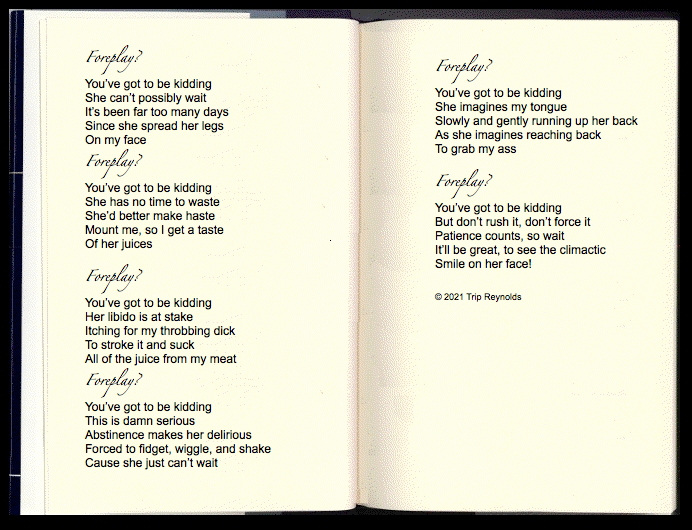 Foreplay?
You've got to be kidding
She can't possibly wait
It's been far too many days
Since she spread her legs
On my face
Foreplay?
You've got to be kidding
She has no time to waste
She'd better make haste
Mount me, so I get a taste
Of her juices
Foreplay?
You've got to be kidding
Her libido is at stake
Itching for my throbbing dick
To stroke it and suck
All of the juice from my meat
Foreplay?
You've got to be kidding
This is damn serious
Abstinence makes her delirious
Forced to fidget, wiggle, and shake
Cause she just can't wait
Foreplay?
You've got to be kidding
She imagines my tongue
Slowly and gently running up her back
As she imagines reaching back
To grab my ass
Foreplay?
You've got to be kidding
But don't rush it, don't force it
Patience counts, so wait
It'll be great, to see the climactic
Smile on her face!
© 2021 Trip Reynolds